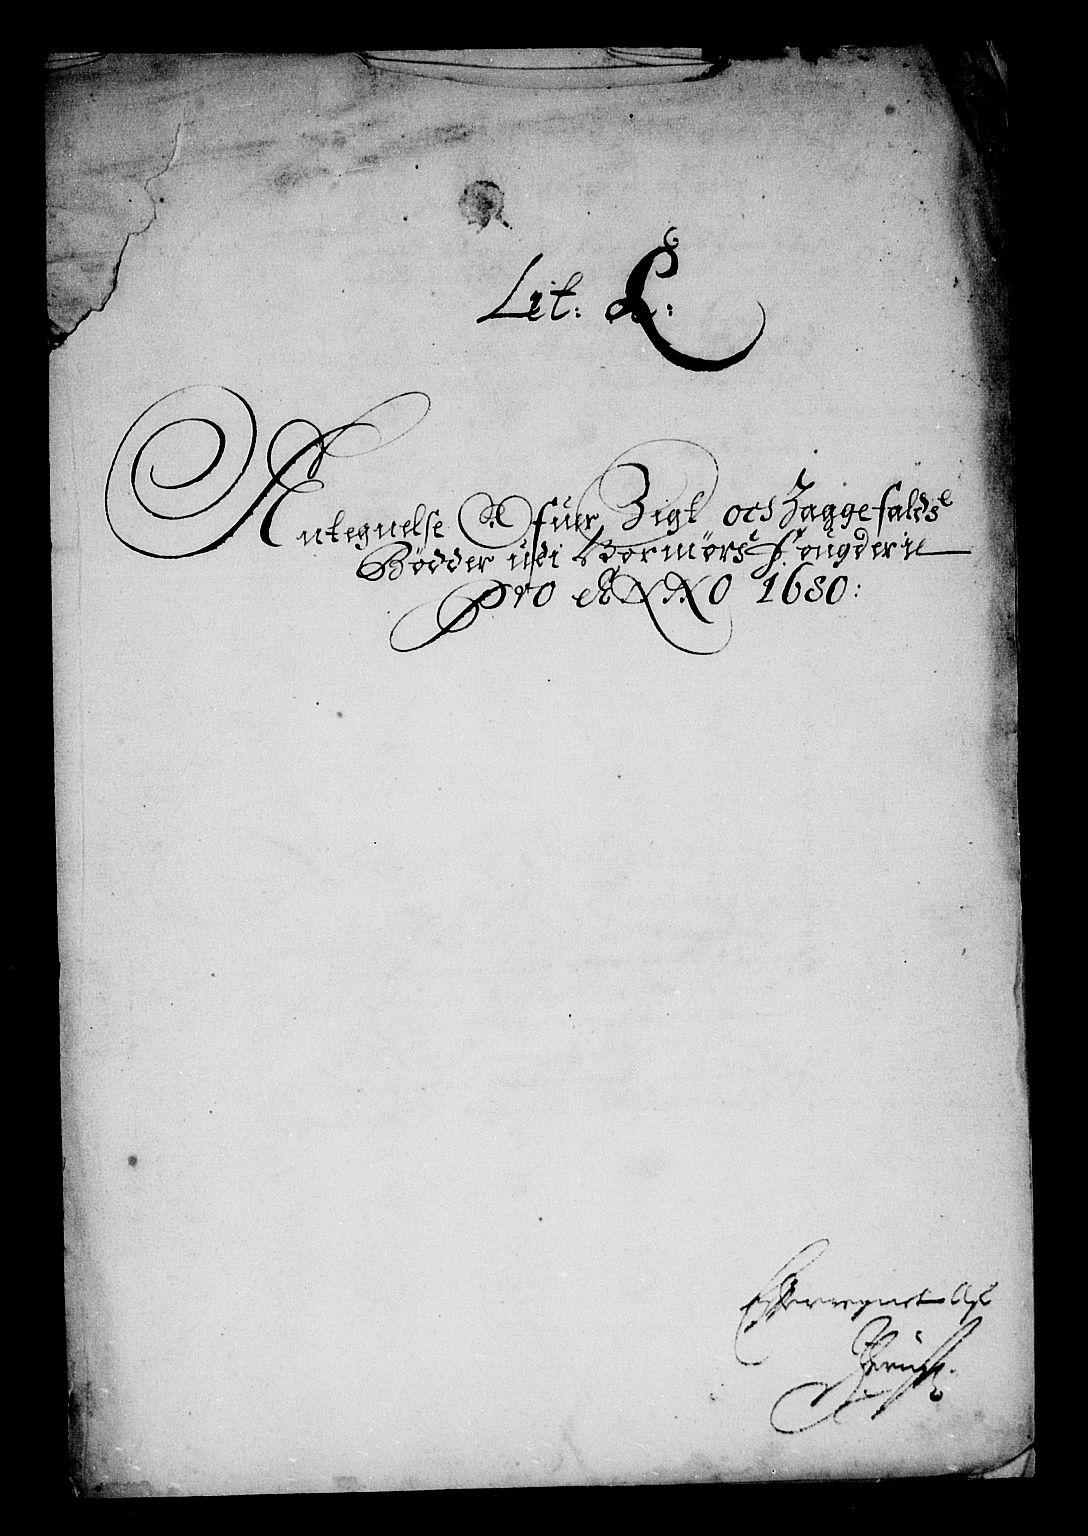 Lit: L:
Antegnelse Ofuer Zigt och Zaggefalds
Bødder udi Normørs Fougderie
pro ANNO 1680:
Efterregnet Af